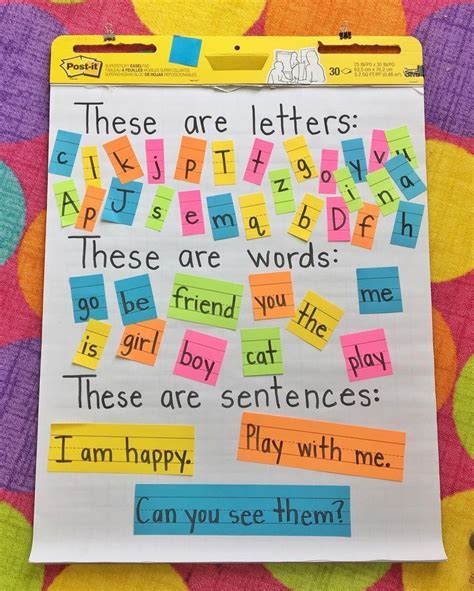 Post-it
30
These are letters:
c l k j p T t z g o y v u
A p J s e m q b D i f n h a
These are words:
go be friend you the me
is girl boy cat play
These are sentences:
I am happy.
Play with me.
Can you see them?